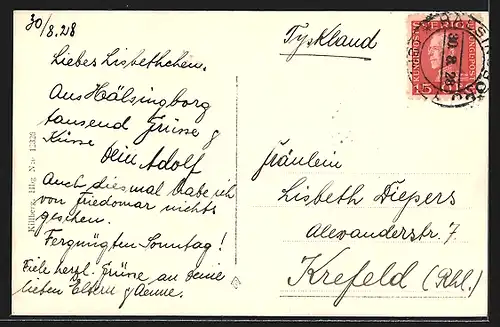 30/8.28
Liebes Lisbethchen.
Aus Hälsingborg
tausend Grüsse &
Küsse
Dein Adolf
Auch diesmal habe ich
von Friedomar nichts
gesehen.
Vergnügten Sonntag!
Viele herzl. Grüsse an deine
lieben Eltern & Aenne.
Tyskland
15
30.8.28
Fräulein
Lisbeth Diepers
Alexanderstr. 7
Krefeld (Rhl.)